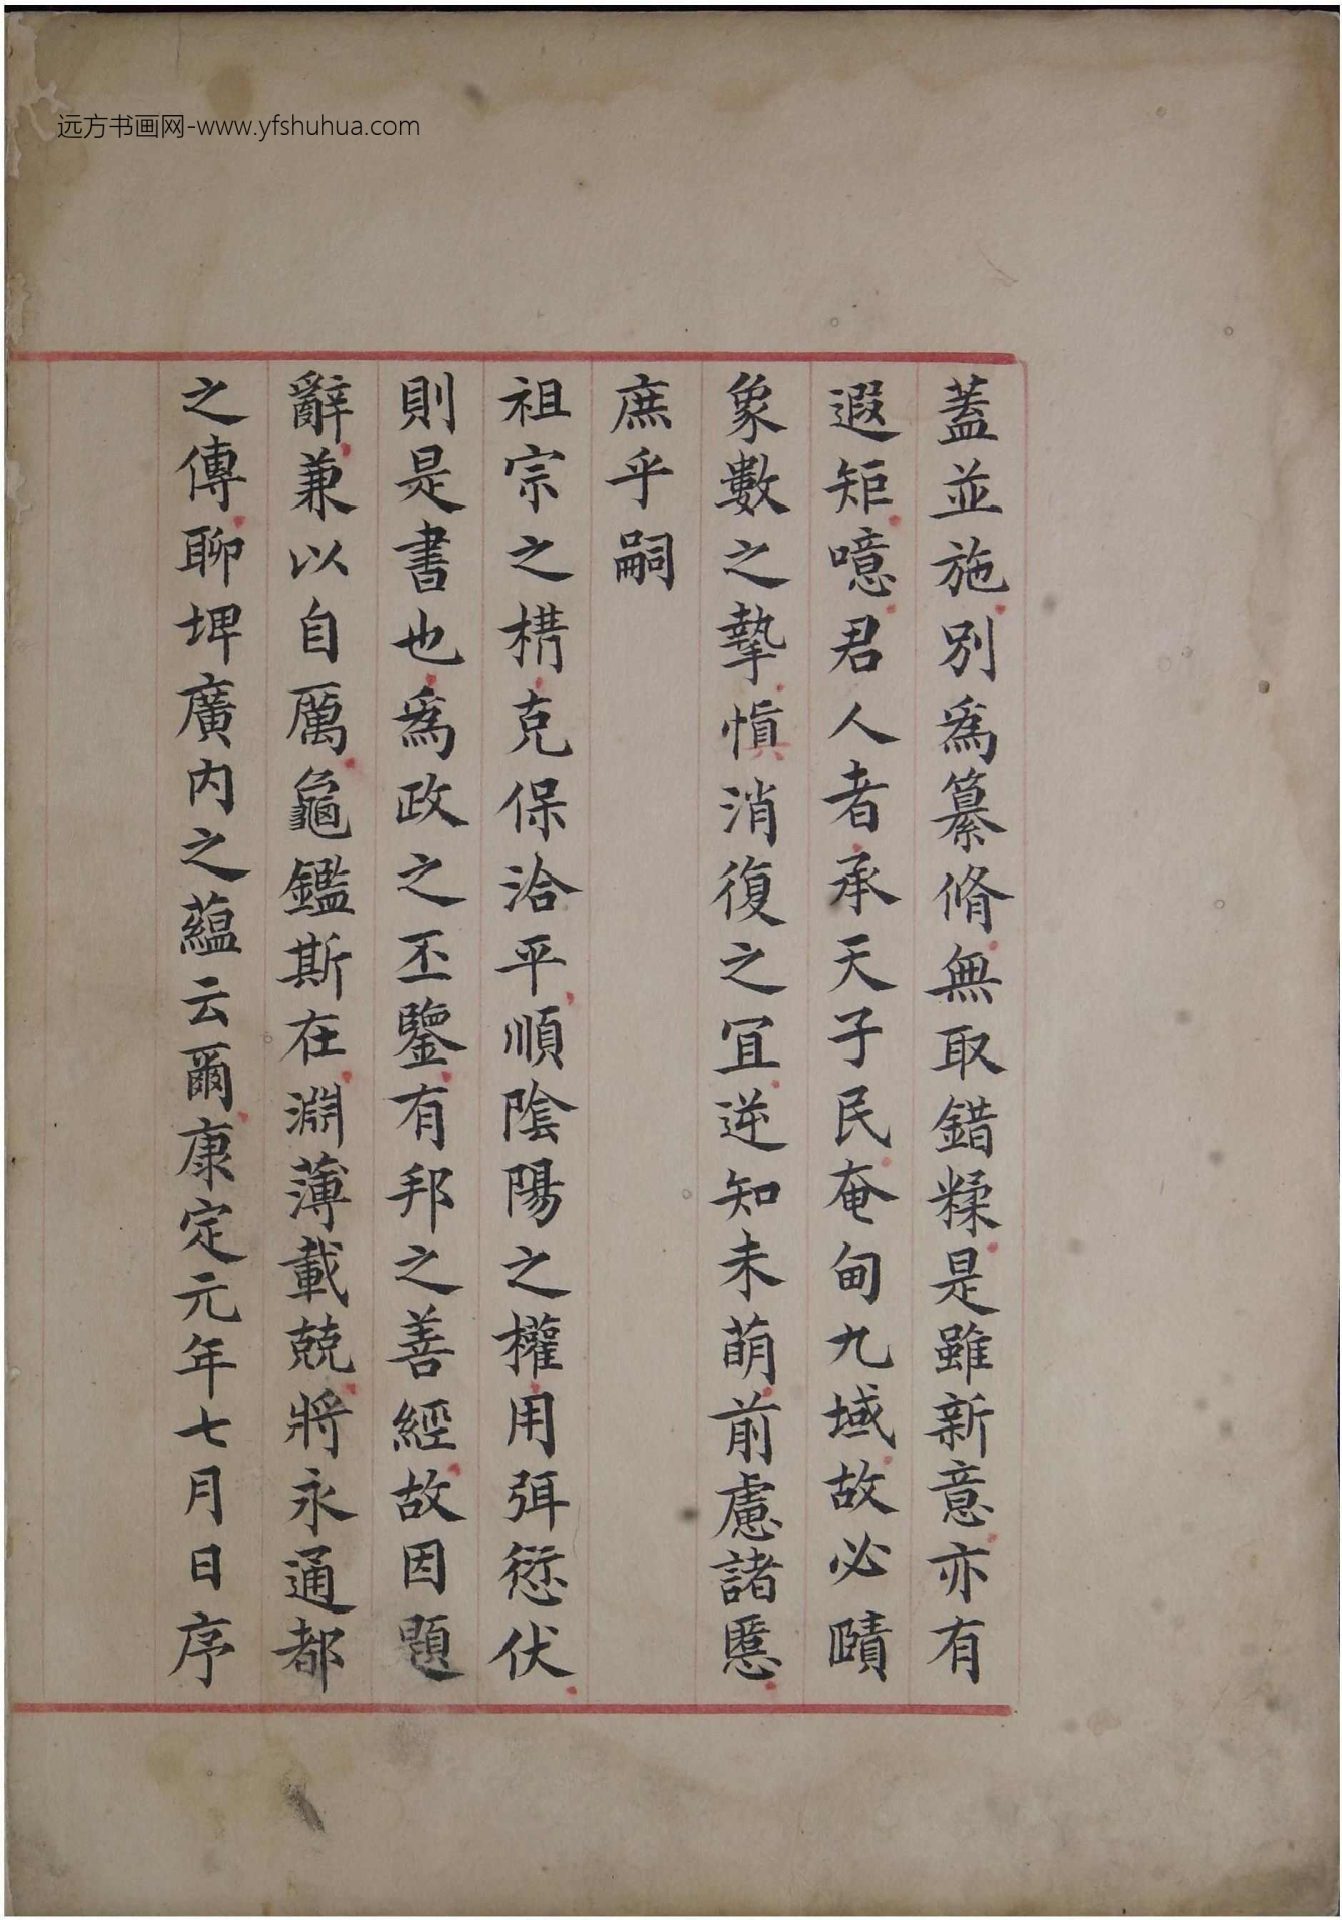 远方书画网-www.yfshuhua.com
蓋並施別為纂脩無取錯糅是雖新意亦有
遐矩噫君人者承天子民奄甸九域故必賾
象數之摯慎消復之宜逆知未萌前慮諸慝
庶乎嗣
祖宗之構克保洽平順陰陽之權用弭愆伏
則是書也為政之丕鑒有邦之善經故因題
辭兼以自厲龜鑑斯在淵薄載兢將永通都
之傳聊埤廣內之蘊云爾康定元年七月日序